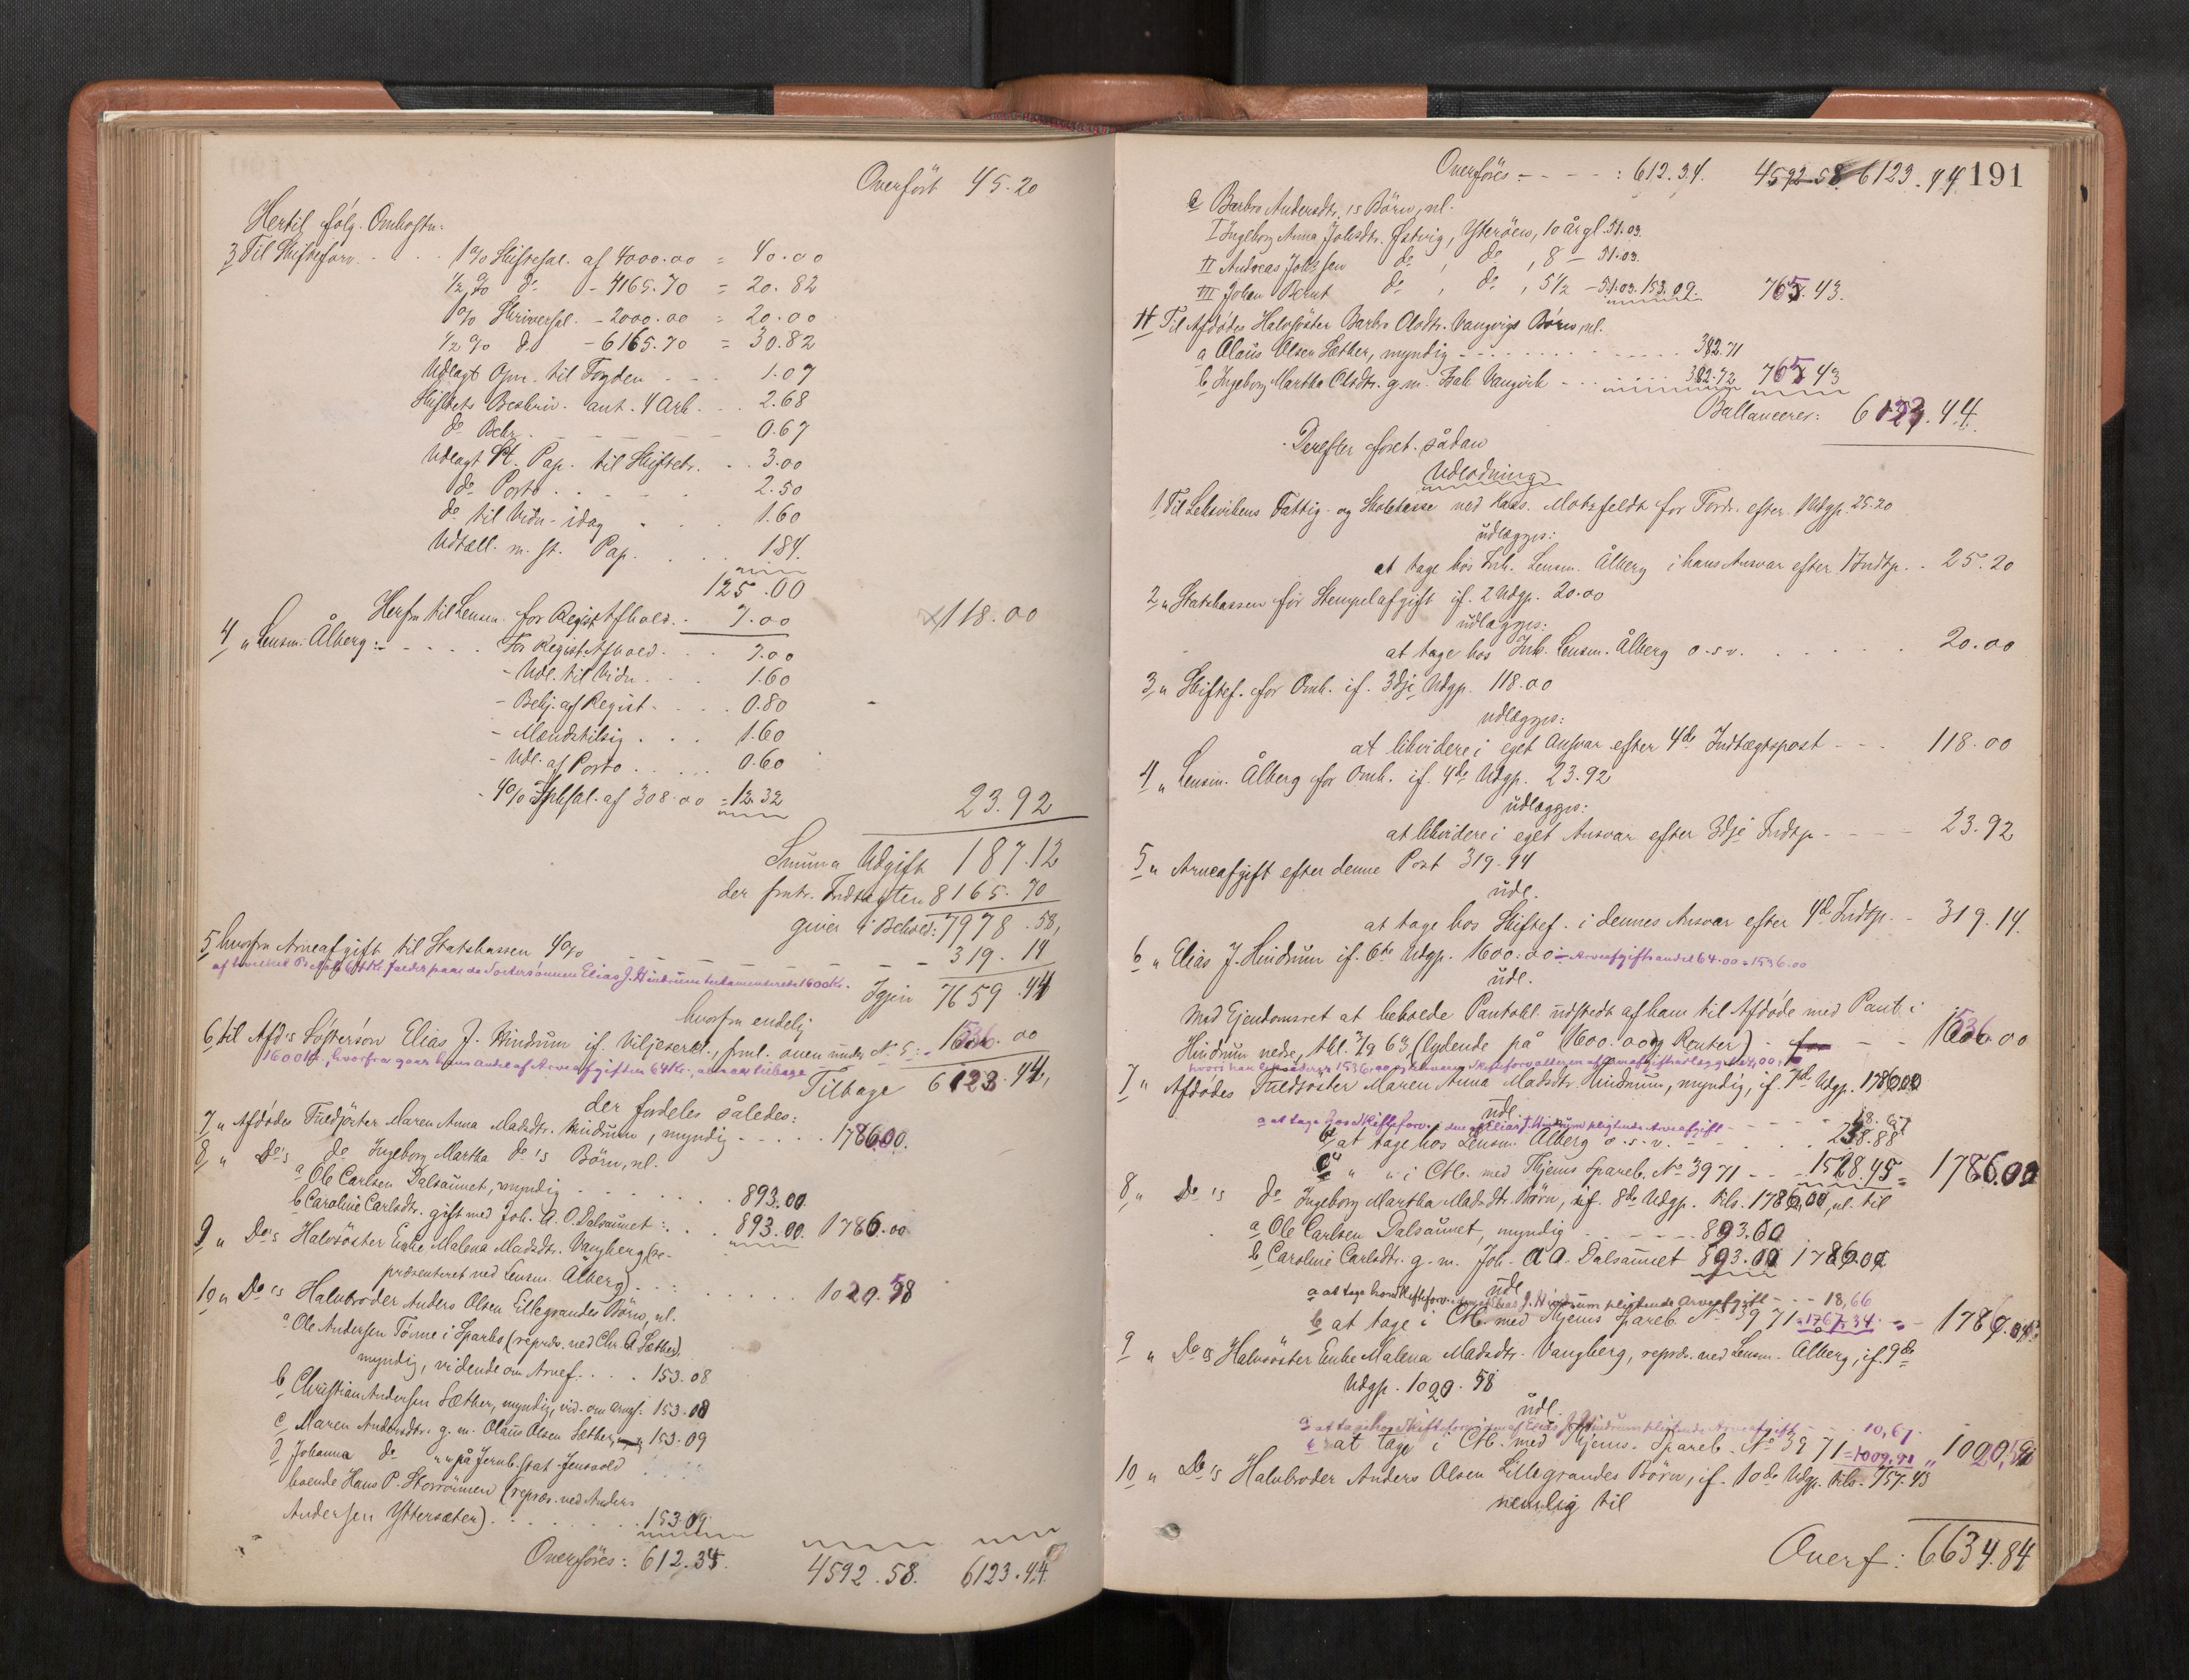 Overført 45.20
Hertil følg. Omkostn:
3 Til Skifteforv. . . . 1% Skiftesal. af 4000.00 = 40.00
1/2 % do - 4165.70 = 20.82
1% Skriversal. - 2000.00 = 20.00
1/2 % do - 6165.70 = 30.82
Udlagt Opn. til Fogden - - - 1.07
Skiftets Beskriv. ant. 4 Ark. . . 2.68
do Bekr. - - - - - 0.67
Udlagt St. Pap. til Skiftebr. . . 3.00
do Porto . . . . . 2.50
do til Vidn. idag . . . 1.60
Udtall. m. st. Pap. . . . 1.84
125.00
Herfra til Lensm. for Regist. Afhold. . 7.00 118.00
4 " Lensm. Ålberg: - . . . . For Regist. Afhold. . . 7.00
- Udl. til Vidn. . . . 1.60
- Bekj. af Regist. . . . 0.80
- Mændstilsig . . . 1.60
- Udl. af Porto . . . . 0.60
- 4% Inksal. af 308.00 = 12.32 23.92
Summa Udgift 187.12
der fratr. Indtægten 8165.70
giver i Behold: 7978.58,
5 hvorfra Arveafgift til Statskassen 4% - - - - - - - 319.14
af hvilket Beløb 64 Kr. falder paa de Søstersønnen Elias J. Hindrum testamenterede 1600 Kr.
Igjen 7659.44
hvorfra endelig
6 til Afd's Søstersøn Elias J. Hindrum if. Viljeserkl., frml. oven under No 5: . 1536.00
1600 Kr., hvorfra gaar hans Andel af Arveafgiften 64 Kr., altsaa tilbage
Tilbage 6123.44,
der fordeles således:
7 " Afdødes Fuldsøster Maren Anna Madsdtr. Hindrum, myndig - - . . . 1786.00.
8 " Do's do Ingeborg Martha do's Børn, nl.
a Ole Carlsen Dalsaunet, myndig . . . . . . . 893.00
b Caroline Carlsdtr. gift med Joh. A. O. Dalsaunet: . . . 893.00. 1786.00
9 " Do's Halvsøster Enke Malena Madsdtr. Vangberg (re-
præsenteret ved Lensm. Ålberg) . . : . . . . . . 1020.58
10 " Do's Halvbroder Anders Olsen Lillegrandes Børn, nl.
a Ole Andersen Tønne i Sparbo (repræs. ved Chr. A. Sæther)
myndig, vidende om Arvef. . . . 153.08
b Christian Andersen Sæther, myndig, vid. om Arvef. 153.08
c Maren Andersdtr. g. m. Olaus Olsen Sæther, 153.09
d Johanna do " " på Jernb. stat. Jensvold
boende Hans P. Storrønnen (repræs. ved Anders
Andersen Yttersæter) . . . . . . . . . 153.09
Overføres: 612.34. 4592.58. 6123.44.
191
Overføres - - - - : 612.34. 4592.58 6123.44
e Barbro Andersdtr.'s Børn, nl.
I Ingeborg Anna Johsdtr. Østvig, Ytterøen, 10 år gl. 51.03.
II Andreas Johssen do , do , 8 - 51.03.
III Johan Bernt do , do , 5 1/2 - 51.03. 153.09. 765.43.
11 Til Afdødes Halvsøster Barbro Olsdtr. Vangvigs Børn, nl.
a Olaus Olsen Sæther, myndig - - . . . . . . . . 382.71
b Ingeborg Martha Olsdtr. g. m. Vangvik . . . . . . 382.72 765.43
Ballancerer: 6123.44.
Derefter foret. sådan
Udlodning
1 Til Leksvikens Fattig- og Skolekasse ved Kass. Motzfeldt for Fordr. efter Udgp. 25.20
udlægges:
at tage hos Ink. Lensm. Ålberg i hans Ansvar efter 1 Indtp. . . 25.20
2 " Statskassen for Stempelafgift if. 2 Udgp. 20.00
udlægges:
at tage hos Ink. Lensm. Ålberg o.s.v. . . . . . . 20.00
3 " Skiftef. for Omk. if. 3dje Udgp. 118.00
udlægges:
at likvidere i eget Ansvar efter 4de Indtægtspost - - - 118.00
4 " Lensm. Ålberg for Omk. if. 4de Udgp. 23.92
udlægges:
at likvidere i eget Ansvar efter 3dje Indtp. - - - - 23.92
5 " Arveafgift efter denne Post 319.14
udl.
at tage hos Skiftef. i dennes Ansvar efter 4de Indtp. - - 319.14.
6 " Elias J. Hindrum if. 6te Udgp. 1600.00 ÷ Arveafgiftsandel 64.00 = 1536.00
udl.
med Ejendomsret at beholde Pantobl. udstedt af ham til Afdøde med Pant i
Hindrum nedre, tkl. 3/9 63 (lydende på 1600.00 og Renter) - - - 1536.00
7 " Afdødes Fuldsøster Maren Anna Madsdtr. Hindrum, myndig, if. 7de Udgp. 1786.00
udl.
a at tage hos Skifteforv. i den af Elias J. Hindrum pligtende Arveafgift - - - - 18.67
b at tage hos Lensm. Ålberg o.s.v. - - . . . 238.88
c " " " i Ctb. med Hjems Spareb. No 3971 - - 1528.45 = 1786.00
8 " Do's do Ingeborg Martha Madsdtr. Børn, if. 8de Udgp. Kls. 1786.00, nl. til
a Ole Carlsen Dalsaunet, myndig . . - - - - 893.00
b Caroline Carlsdtr. g. m. Joh. A. O. Dalsaunet 893.00 1786.00
udl
a at tage hos Skifteforv. i den af Elias J. Hindrum pligtende Arveafgift - - - 18,66
b at tage i Ctb. med Hjems Spareb. No 3971 = 1767.34. = - 1786.00
9 " Do's Halvsøster Enke Malena Madsdtr. Vangberg, repræs. ved Lensm. Ålberg, if. 9de
Udgp. 1020.58
udl.
a at tage hos Skifteforv. i den af Elias J. Hindrum pligtende Arveafgift - - 10,67.
b at tage i Ctb. med Hjems. Spareb. No 3971 = 1009,91 " 1020,58
10 " Do's Halvbroder Anders Olsen Lillegrandes Børn, if. 10de Udgp. Kls. 757.43
nemlig til
Overf: 6634.84